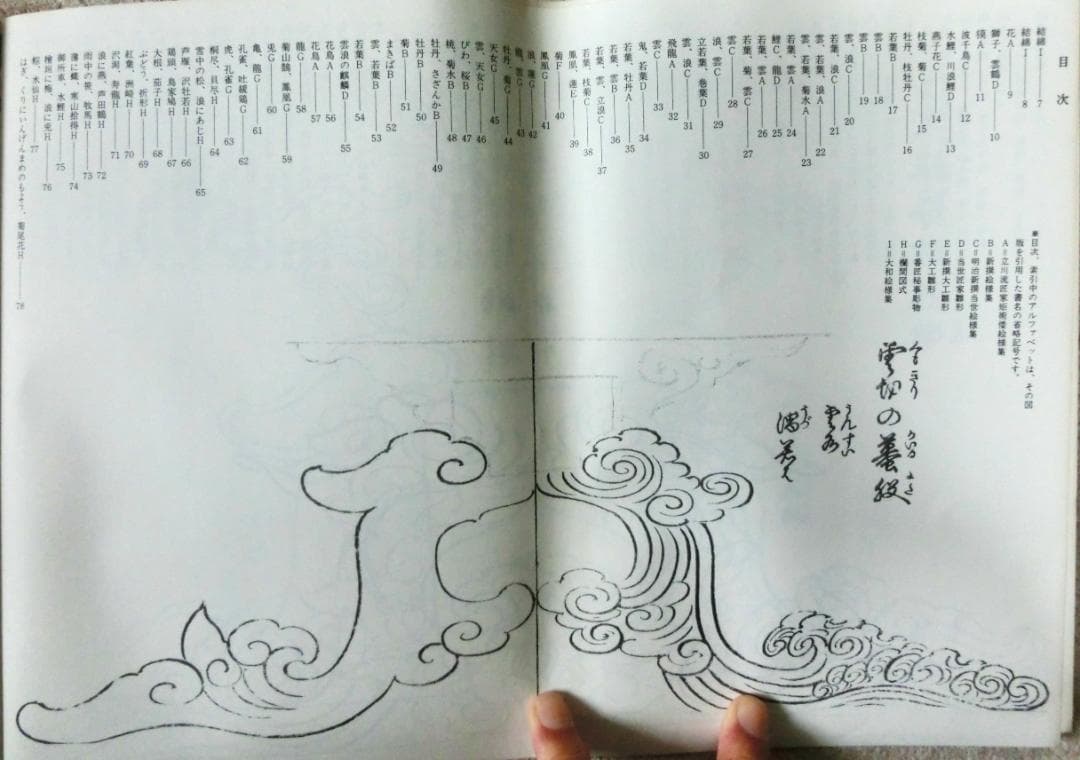 目次
結綿I――7
結綿I――8
花A――9
獅子、雲鶴D――10
獏A――11
波千鳥C――12
水鯉、川浪鯉D――13
燕子花C――14
枝菊、菊C――15
牡丹、枝牡丹C――16
若葉B――17
雲B――18
雲B――19
雲、浪C――20
若葉、浪C――21
雲、若葉、浪A――22
若葉、雲、菊水A――23
雲、若葉A――24
鯉C、龍D――25
若葉A、雲A――26
若葉、菊、雲C――27
雲C――28
浪、雲C――29
立若葉、巻葉D――30
雲、浪C――31
飛龍A――32
雲、若葉D――33
鬼、若葉D――34
若葉、牡丹A――35
若葉、雲B――36
若葉、雲、立浪C――37
若葉、枝菊C――38
鳳凰、蓮E――39
菊F――40
鳳凰G――41
浪、蓮G――42
龍、雲G――43
牡丹、菊G――44
天女G――45
雲、天女G――46
びわ、桜B――47
桃、菊水B――48
牡丹、さざんかB――49
牡丹B――50
菊B――51
まきばB――52
雲、若葉B――53
若葉B――54
雲浪の麒麟D――55
花鳥A――56
花鳥A――57
龍G――58
菊山鵲、鳳凰G――59
兎G――60
亀、龍G――61
孔雀、吐綬鶏G――62
虎、孔雀G――63
桐尽、貝尽H――64
雲中の松、浪にあじH――65
芦雁、沢牡若H――66
鶏頭、鳥家鳩H――67
大根、茄子H――68
ぶどう、折形H――69
紅葉、洲崎H――70
沢潟、寿龍H――71
浪に燕、芦田鶴H――72
雨中の笹、牧馬H――73
薄に蝶、寒山拾得H――74
御所車、水鯉H――75
檜垣に梅、浪に兎H――76
桜、水仙H――77
はぎ、くりにいんげんまめのもよう、菊尾花H――78
※目次、索引中のアルファベットは、その図
版を引用した書名の省略記号です。
A=立川流匠家矩術倭絵様集
B=新撰絵様集
C=明治新撰当世絵様集
D=当世匠家雛形
E=新撰大工雛形
F=大工雛形
G=番匠秘事彫物
H=欄間図式
I=大和絵様集
雲切の蟇股